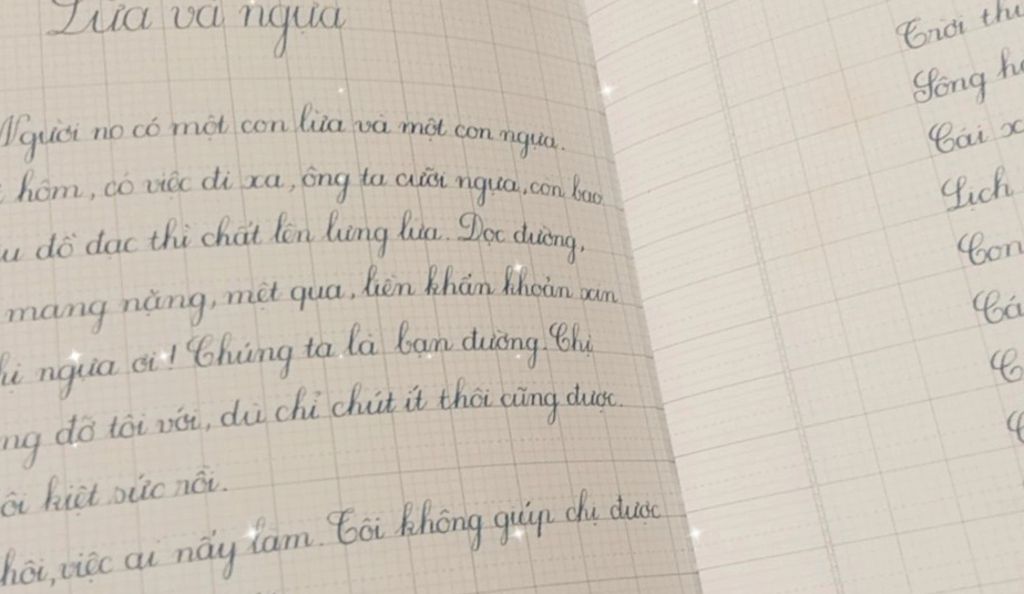 Lừa và ngựa
Người nọ có một con lừa và một con ngựa.
hôm, có việc đi xa, ông ta cưỡi ngựa, còn bao
đồ đạc thì chất lên lưng lừa. Dọc đường,
mang nặng, mệt quá, liền khẩn khoản xin
ngựa ơi! Chúng ta là bạn đường. Chị
đỡ tôi với, dù chỉ chút ít thôi cũng được.
kiệt sức rồi.
việc ai nấy làm. Tôi không giúp chị được
Trời
Sông
Cái
Lịch
Con